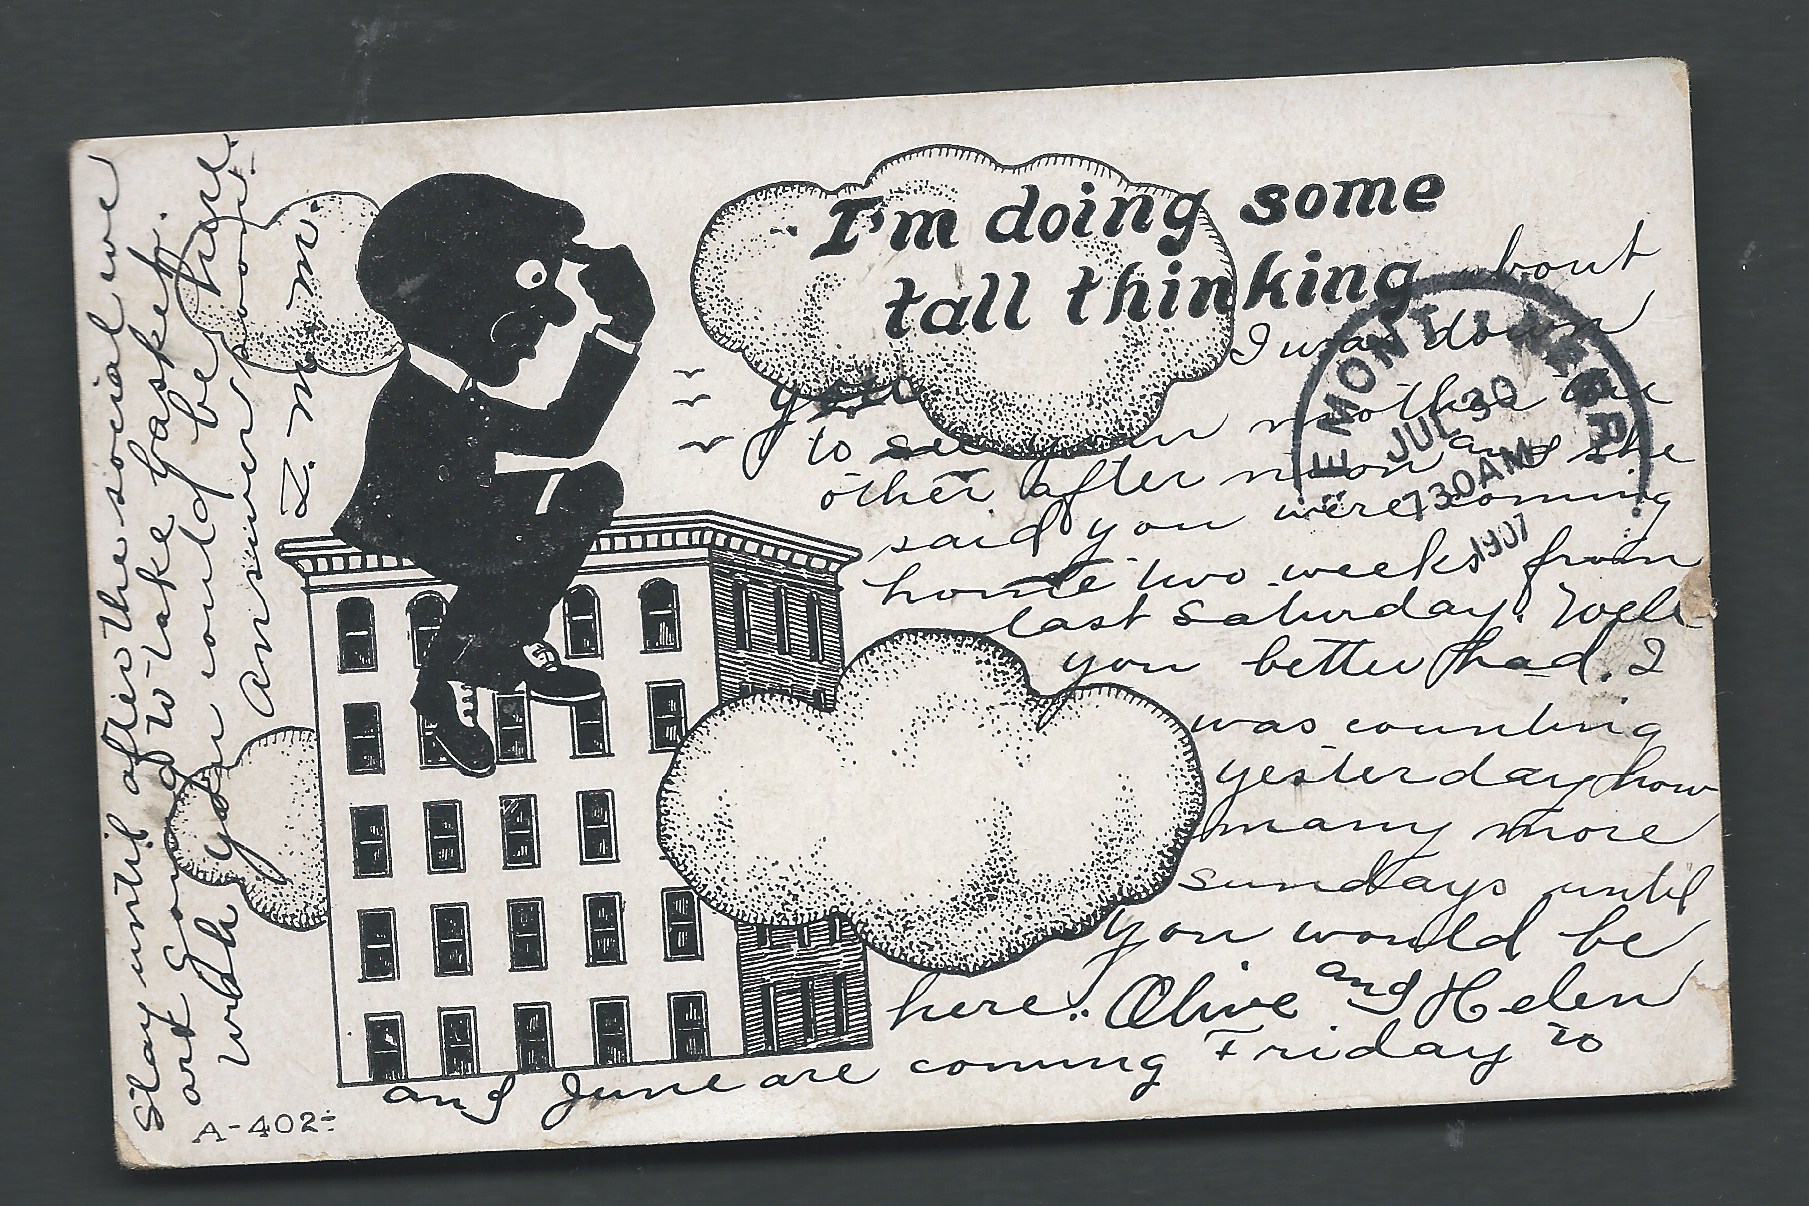 I'm doing some
tall thinking
about
you
I was down
to see your mother the
other after noon and she
said you were coming
home two weeks from
last Saturday. Well
you better had. I
was counting
yesterday how
many more
sundays until
you would be
here. Olive and Helen
and June are coming Friday to
stay until after the social we
are going to take basket.
wish you could be here.
Answer soon.
L. M. M.
EMONT, NEBR.
JUL 30
730AM
1907
A-402